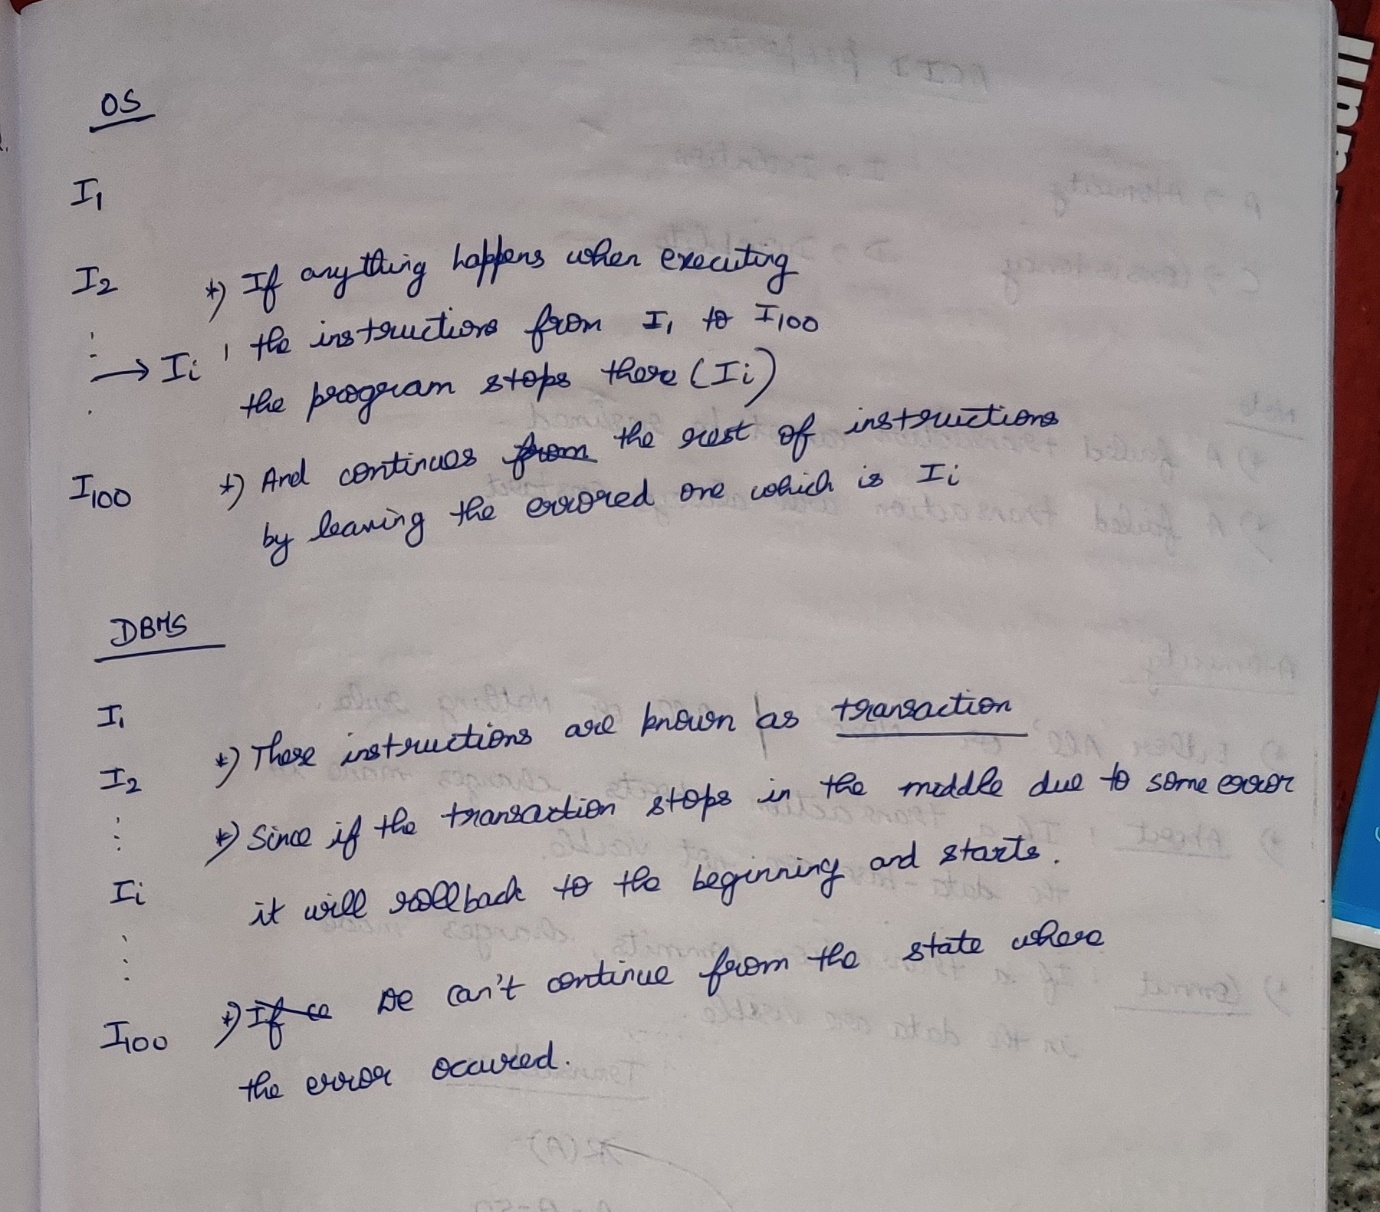 OS
I1
I2
*) If anything happens when executing
the instructions from I1 to I100
→ Ii
the program stops there (Ii)
I100
*) And continues from the rest of instructions
by leaving the errored one which is Ii
DBMS
I1
*) These instructions are known as transaction
I2
*) Since if the transaction stops in the middle due to some error
Ii
it will rollback to the beginning and starts.
I100
*) If ce we can't continue from the state where
the error occured.